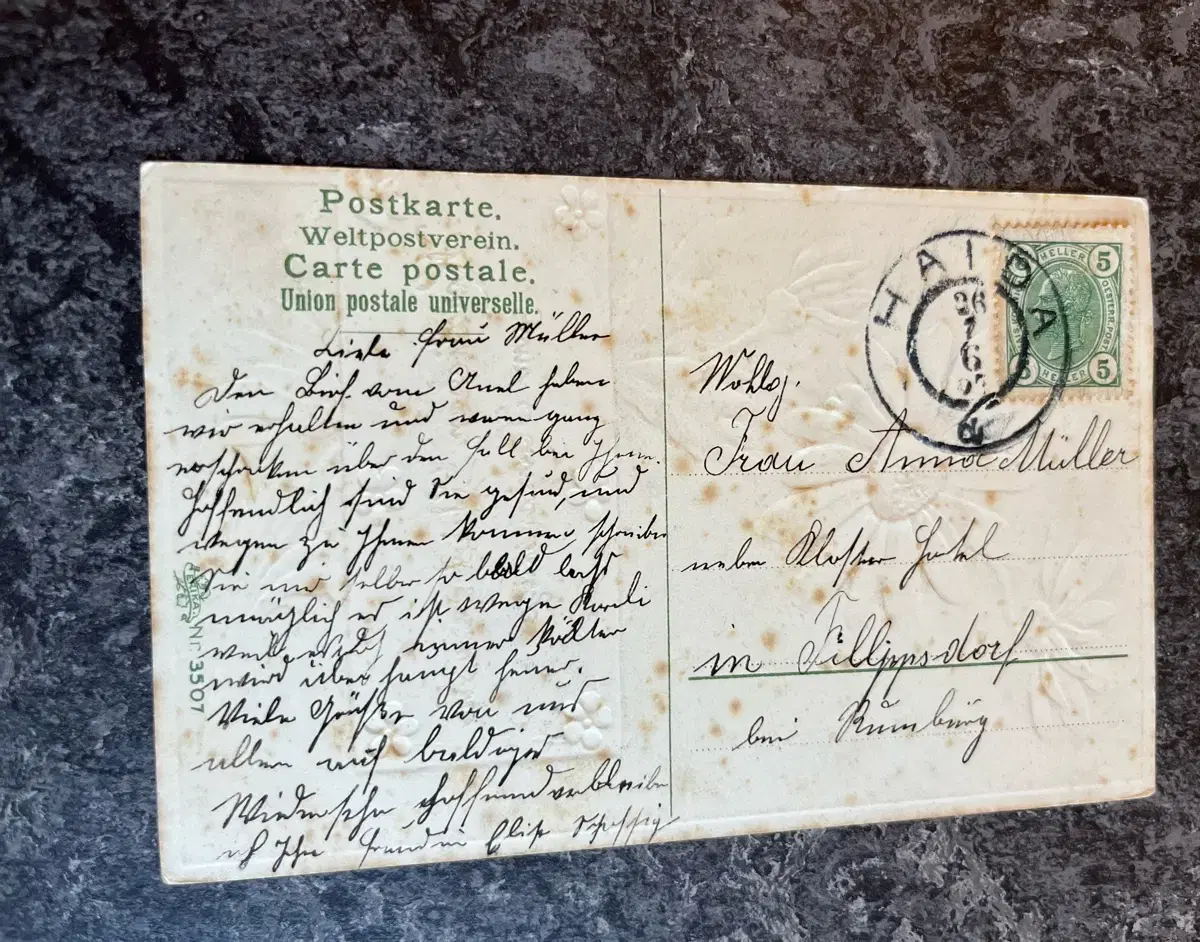 Postkarte.
Weltpostverein.
Carte postale.
Union postale universelle.
Liebe Frau Müller
Den Brief vom Axel haben
wir erhalten und waren ganz
erschroken über den Fall bei Ihnen.
Hoffendlich sind Sie gesund, und
wegen zu Ihnen kommen, schreiben
Sie mir selber so bald
möglich es ist wegen
weil es doch immer kälter
wird überhaupt heuer.
Viele Grüße von uns
allen auf baldiges
Wiedersehn hoffend verbleibe
ich Ihre Freundin Elise
Nr. 3507
HAIDA
26
7
6
5
HELLER
5
5
Wohlg.
Frau Anna Müller
neben Kloster Hotel
in Fillippsdorf
bei Rumburg